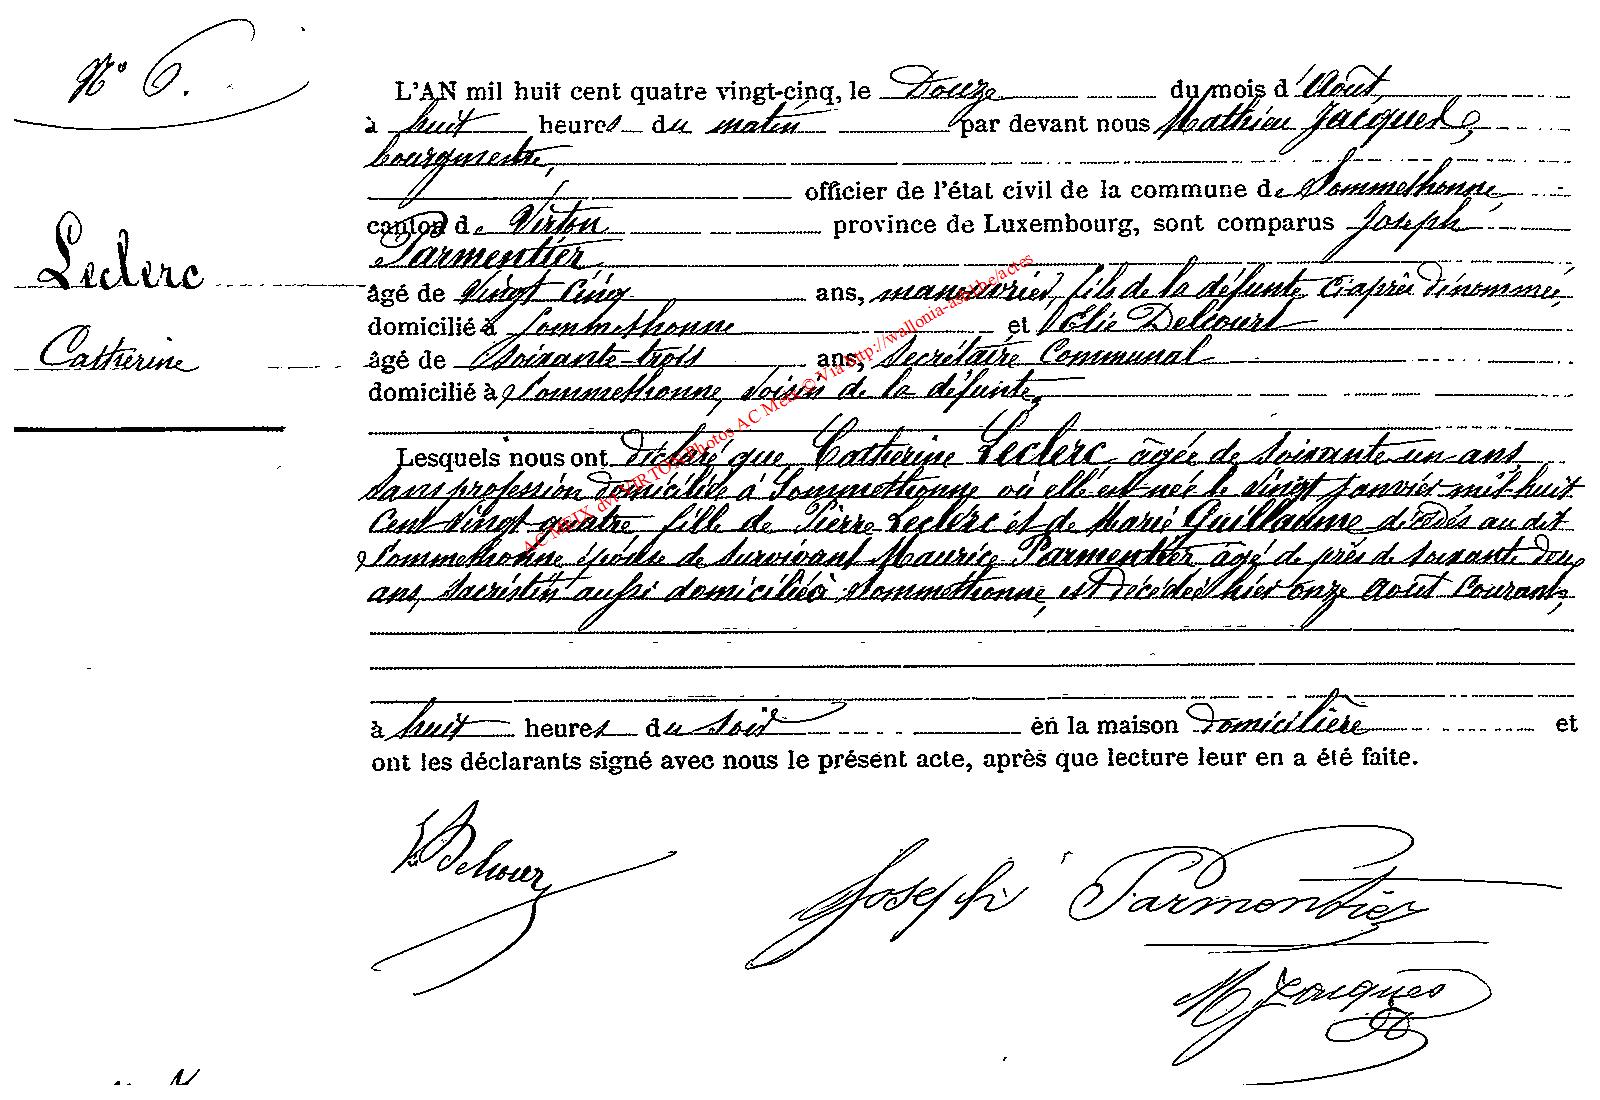 N° 6.
L'AN mil huit cent quatre vingt-cinq, le Douze du mois d'Août,
à huit heures du matin par devant nous Mathieu Jacques,
bourgmestre,
officier de l'état civil de la commune de Sommethonne
canton de Virton province de Luxembourg, sont comparus Joseph
Parmentier
âgé de vingt cinq ans, manouvrier, fils de la défunte ciaprès dénommée,
domicilié à Sommethonne et Elie Delcourt
âgé de soixante-trois ans, secrétaire communal
domicilié à Sommethonne, voisin de la défunte,
Leclerc
Catherine
Lesquels nous ont déclaré que Catherine Leclerc, âgée de soixante-un ans,
sans profession domiciliée à Sommethonne où elle est née le vingt janvier mil-huit
cent vingt quatre, fille de Pierre Leclerc et de Marie Guillaume décédés au dit
Sommethonne épouse de survivant Maurice Parmentier âgé de près de soixante deux
ans, sacristin aussi domicilié à Sommethonne, est décédée hier onze Août courant,
à huit heures du soir en la maison domicilière et
ont les déclarants signé avec nous le présent acte, après que lecture leur en a été faite.
E Delcour
Joseph Parmentier
M Jacques
AC MEIX dvt VIRTON Photos AC Meix © Via http://wallonia-asbl.be/actes